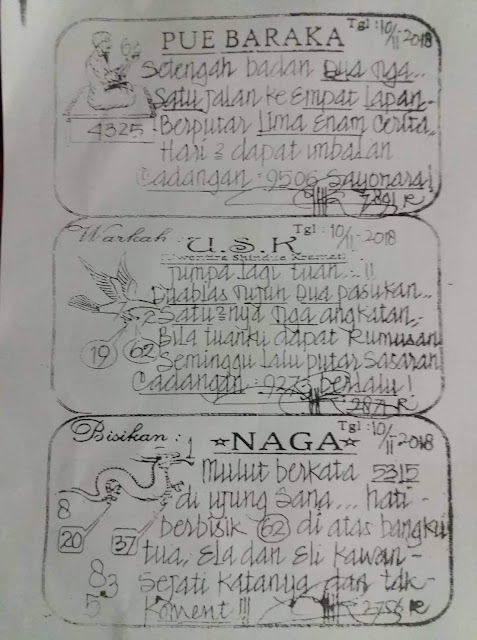 Tgl : 10/11-2018
PUE BARAKA
64
4325
Setengah badan Dua Tiga...
Satu Jalan ke Empat Lapan-
Berputar Lima Enam Cerita..
Hari 2 dapat imbalan
Cadangan : 9506 Sayonara!
7891 R
Warkah : U.S.K Tgl : 10/11-2018
Jumpa lagi tuan...!!
Duablas Turun Dua pasukan...
Satu2nya Tiga angkatan,-
Bila tuanku dapat Rumusan
Seminggu lalu putar Sasaran
Cadangan : 9273 berlalu!
2
19 62
2871 R
Bisikan : ☆NAGA☆ Tgl : 10/11-2018
1
Mulut berkata 5315
di ujung sana... hati-
berbisik 62 di atas bangku
tua, Ela dan Eli kawan-
sejati katanya dan tak-
koment !!!
8
20 37
8 3
5
2756 R